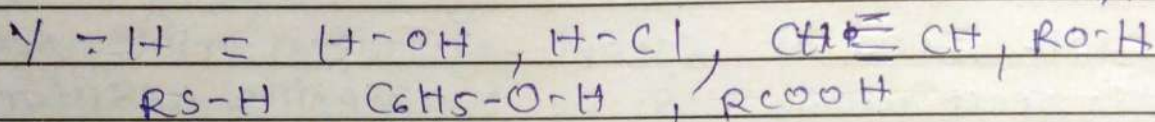 Y-H = H-OH, H-Cl, CH≡CH, RO-H
RS-H C6H5-O-H, RCOOH